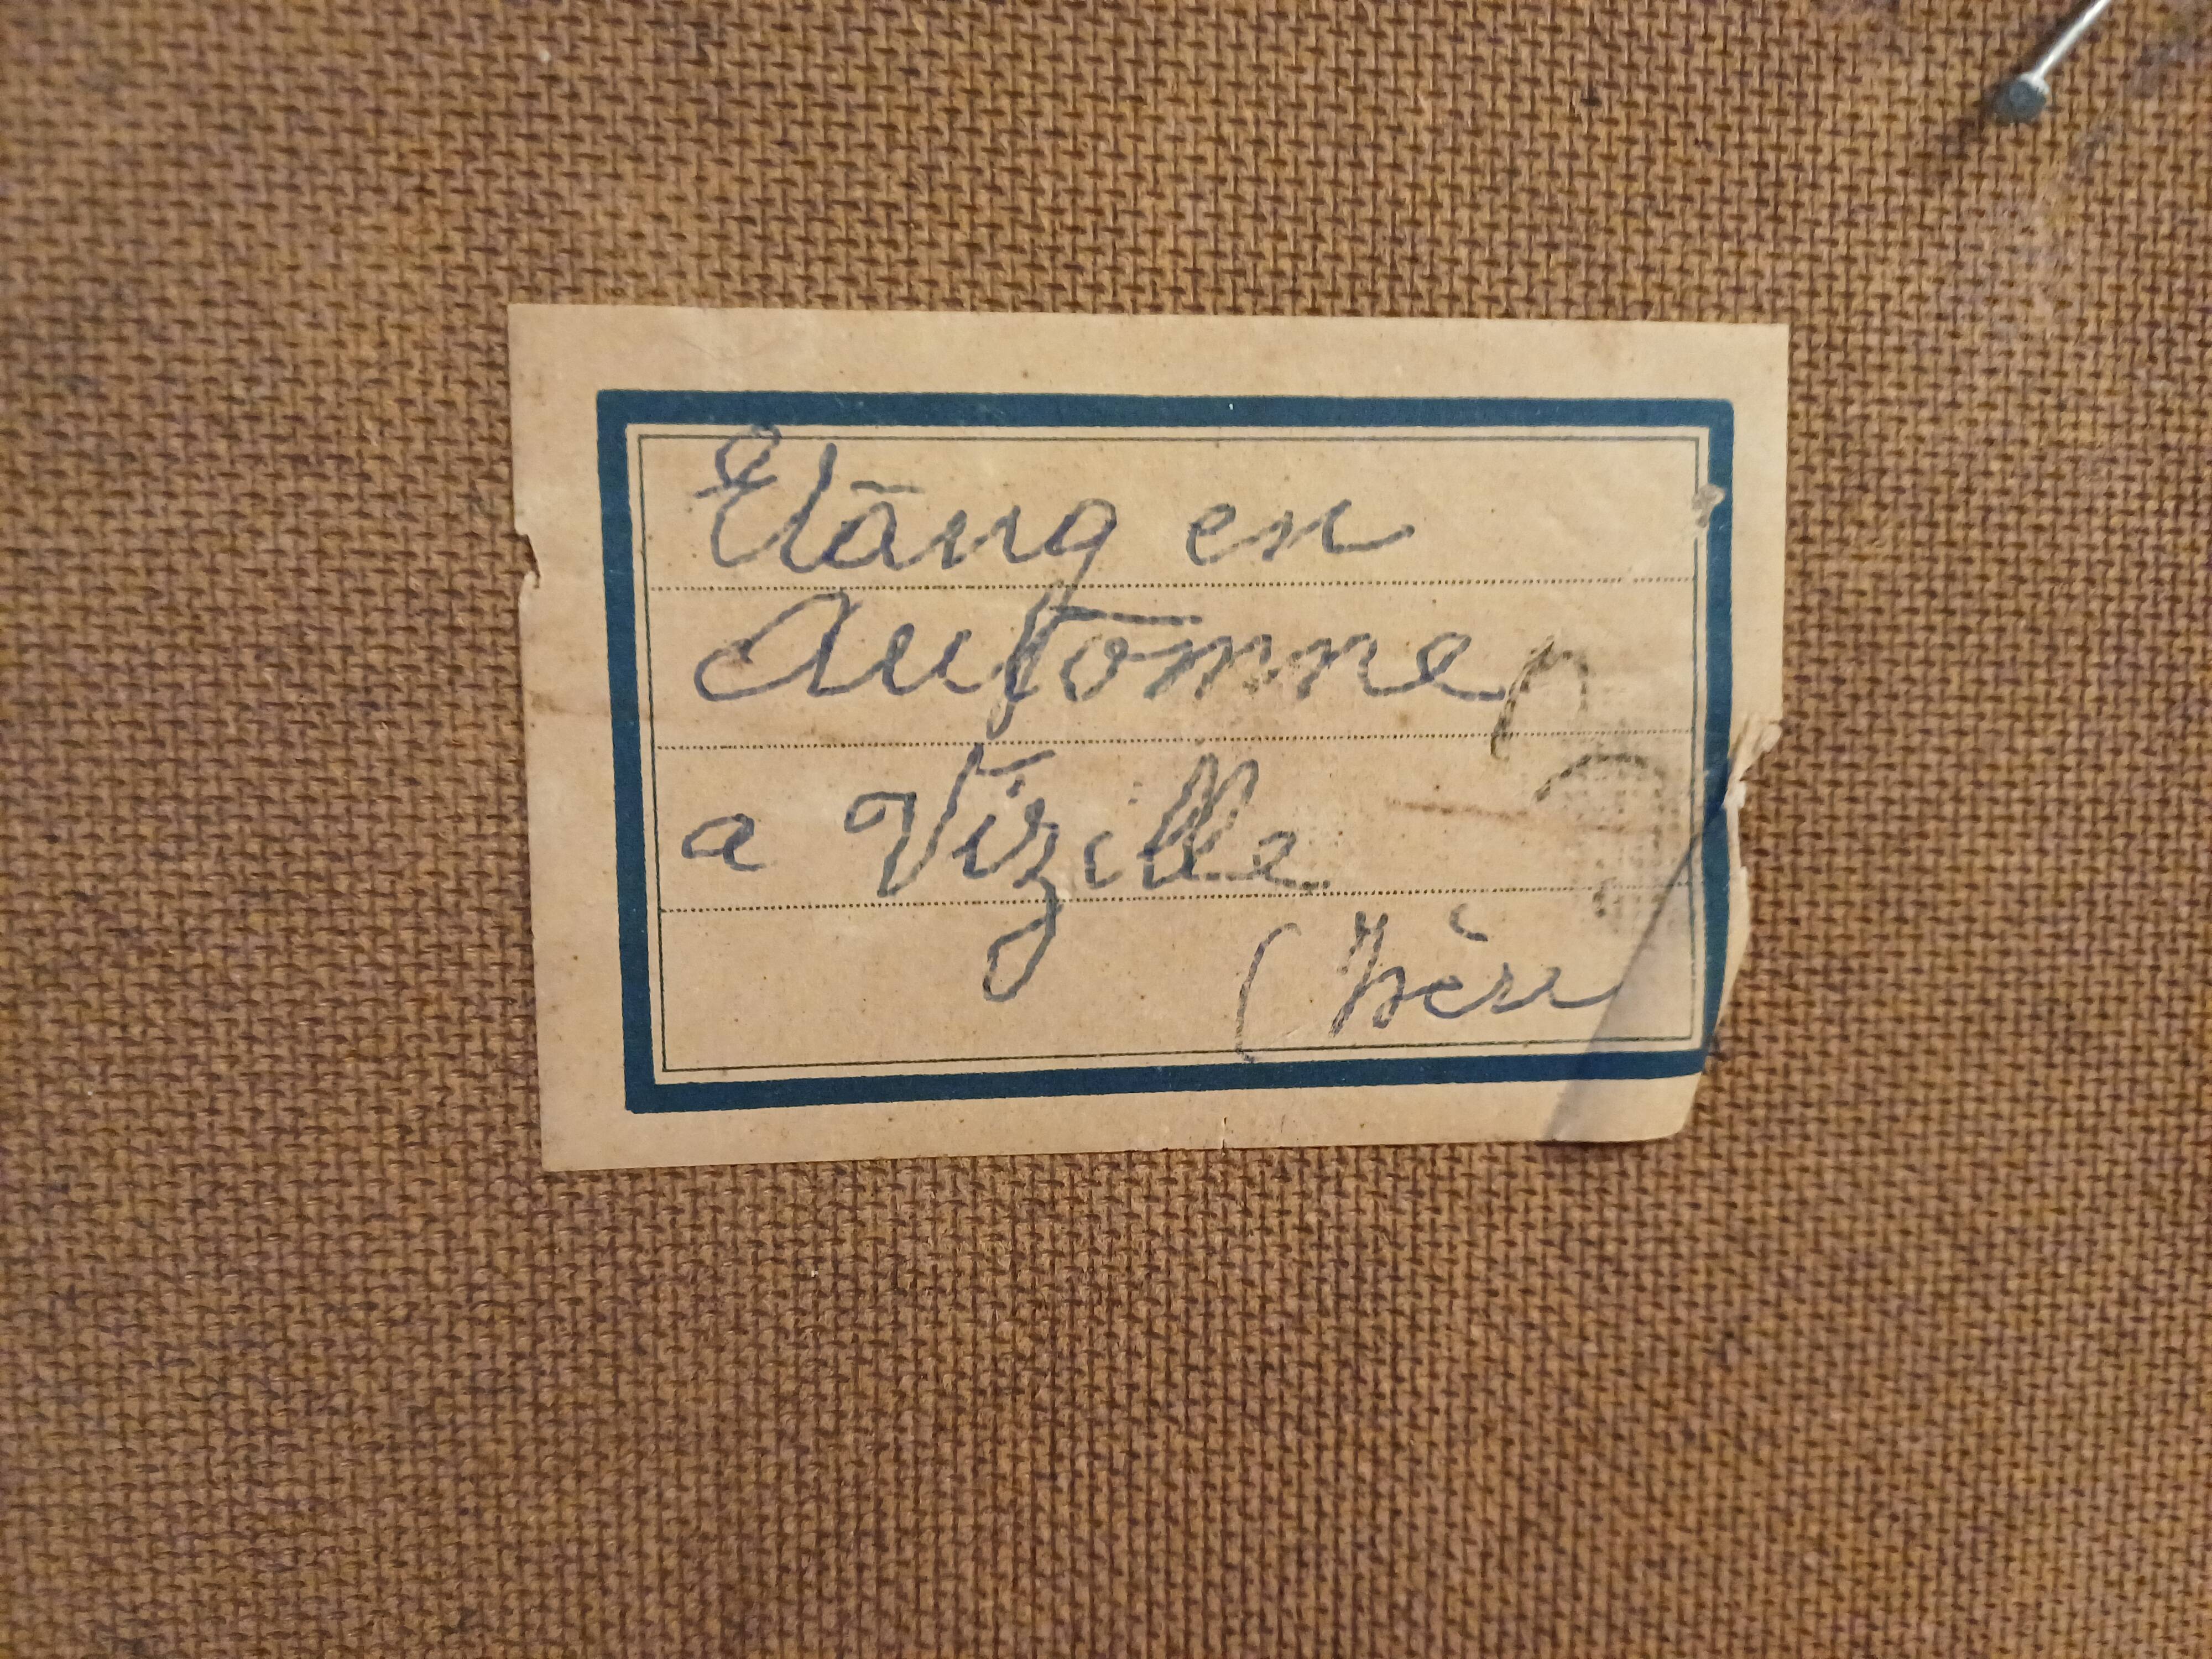 Etang en
Automne
a Vizille
(Isère